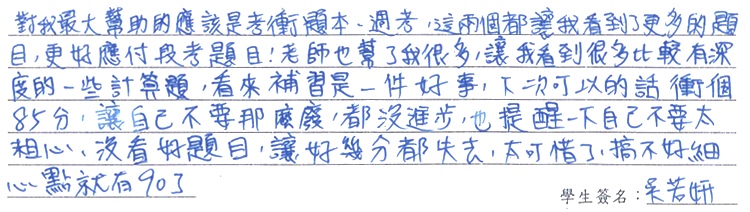 對我最大幫助的應該是考衝題本、週考，這兩個都讓我看到了更多的題
目，更好應付段考題目！老師也幫了我很多，讓我看到很多比較有深
度的一些計算題，看來補習是一件好事，下次可以的話衝個
85分，讓自己不要那麼廢，都沒進步，也提醒一下自己不要太
粗心、沒看好題目，讓好幾分都失去，太可惜了，搞不好細
心點就有90了
學生簽名：吳若妍